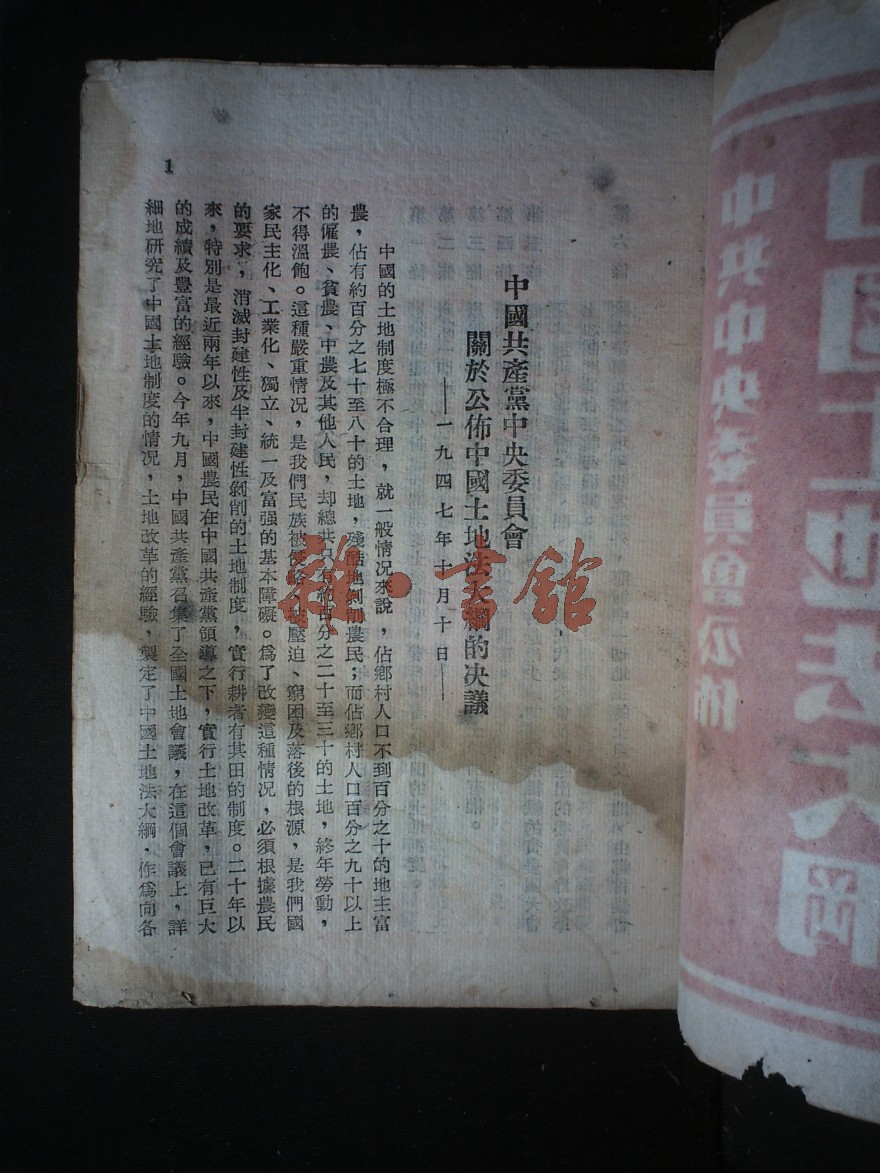 中國共產黨中央委員會
關於公佈中國土地法大綱的决議
——一九四七年十月十日——
中國的土地制度極不合理，就一般情况來說，佔鄉村人口不到百分之十的地主富
農，佔有約百分之七十至八十的土地，殘酷地剝削農民；而佔鄉村人口百分之九十以上
的僱農、貧農、中農及其他人民，却總共只有約百分之二十至三十的土地，終年勞動，
不得溫飽。這種嚴重情况，是我們民族被侵略、被壓迫、窮困及落後的根源，是我們國
家民主化、工業化、獨立、統一及富强的基本障礙。爲了改變這種情况，必須根據農民
的要求，消滅封建性及半封建性剝削的土地制度，實行耕者有其田的制度。二十年以
來，特別是最近兩年以來，中國農民在中國共產黨領導之下，實行土地改革，已有巨大
的成績及豐富的經驗。今年九月，中國共產黨召集了全國土地會議，在這個會議上，詳
細地研究了中國土地制度的情况，土地改革的經驗，製定了中國土地法大綱，作爲向各
1
中共中央委員會公佈
中國土地法大綱
書館